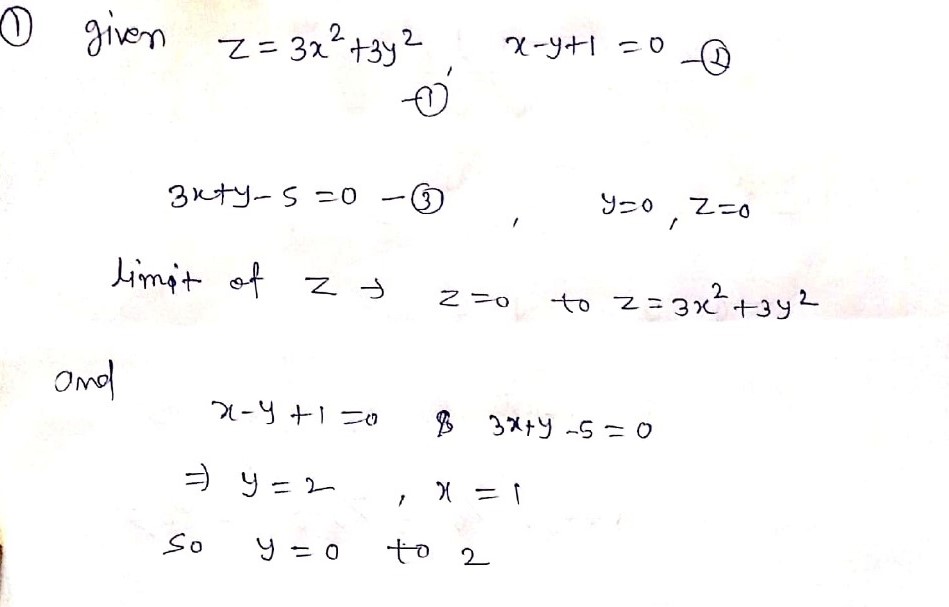 ① given z = 3x²+3y², x-y+1 = 0 -②
-①
3x+y-5 = 0 -③, y=0, z=0
limit of z → z=0 to z = 3x²+3y²
and
x-y+1=0 & 3x+y-5=0
⇒ y = 2, x = 1
So y = 0 to 2